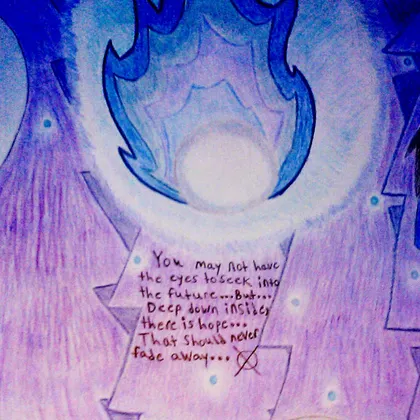 You may not have
the eyes to seek into
the future...But...
Deep down inside,
there is hope...
That should never
fade away...